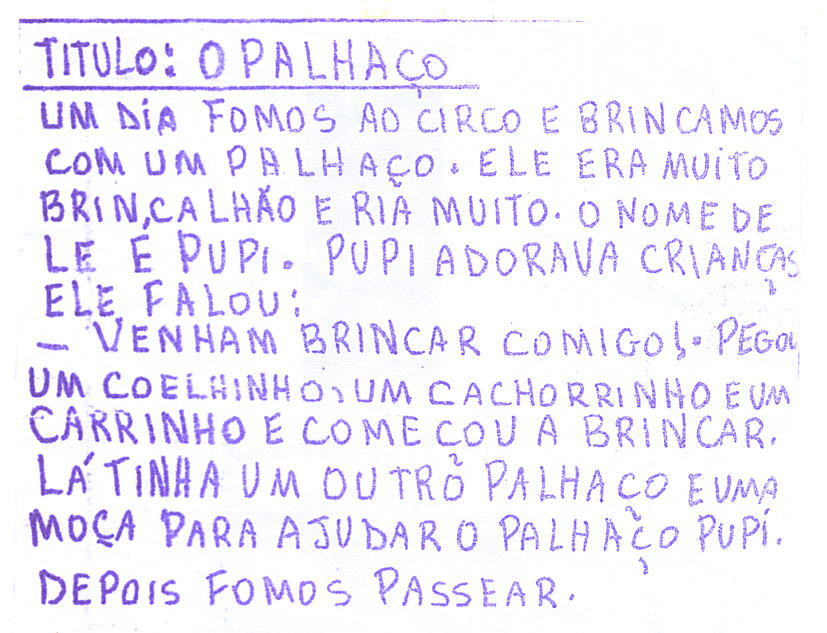 TITULO: O PALHAÇO
UM DIA FOMOS AO CIRCO E BRINCAMOS
COM UM PALHAÇO. ELE ERA MUITO
BRIN,CALHÃO E RIA MUITO. O NOME DE
LE É PUPI. PUPI ADORAVA CRIANÇAS
ELE FALOU:
— VENHAM BRINCAR COMIGO!. PEGOU
UM COELHINHO, UM CACHORRINHO E UM
CARRINHO E COMEÇOU A BRINCAR.
LÁ TINHA UM OUTRO PALHAÇO E UMA
MOÇA PARA AJUDAR O PALHAÇO PUPI.
DEPOIS FOMOS PASSEAR.